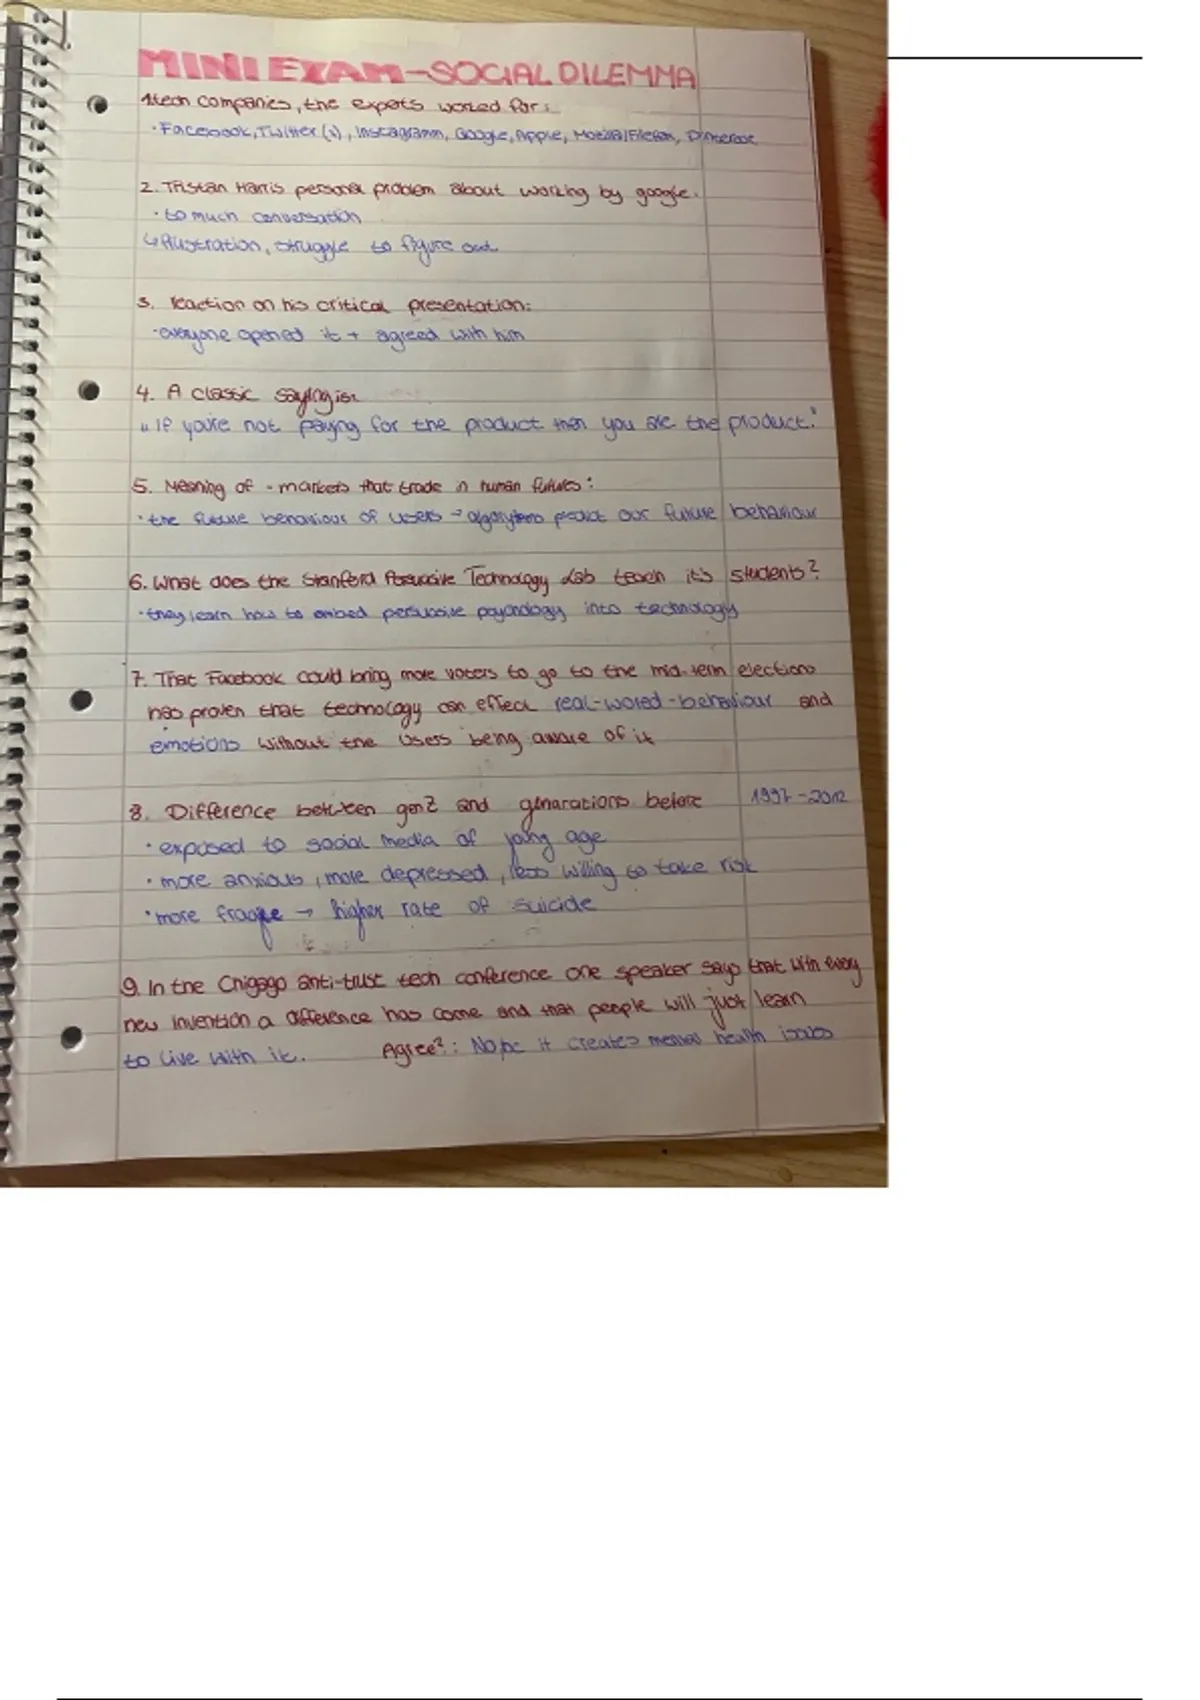 MINI EXAM-SOCIAL DILEMMA
1.tech companies, the expats worked for:
· Facebook, Twitter (x), Instagramm, Google, Apple, Mozilla/Firefox, Pinterest
2. Tristan Harris personal problem about working by google.
· to much conversation
↳ frustration, struggle to figure out
3. reaction on his critical presentation:
· everyone opened it + agreed with him
4. A classic
„ If you're not paying for the product then you are the product."
5. Meaning of - markets that trade in human futures:
· the future behaviour of users → predict our future behaviour
6. What does the Stanford Persuasive Technology Lab teach it's students?
· they learn how to embed persuasive psychology into technology
7. That Facebook could bring more voters to go to the mid-term elections
has proven that technology can effect real-wored-behaviour and
emotions without the users being aware of it
8. Difference between genZ and genarations before 1997-2012
· exposed to social media of young age
· more anxious, more depressed, less willing to take risk
· more → higher rate of suicide
9. In the Chigago anti-trust tech conference one speaker says that with every
new invention a difference has come and that people will just learn
to live with it. Agree?: Nope it creates mental health issues